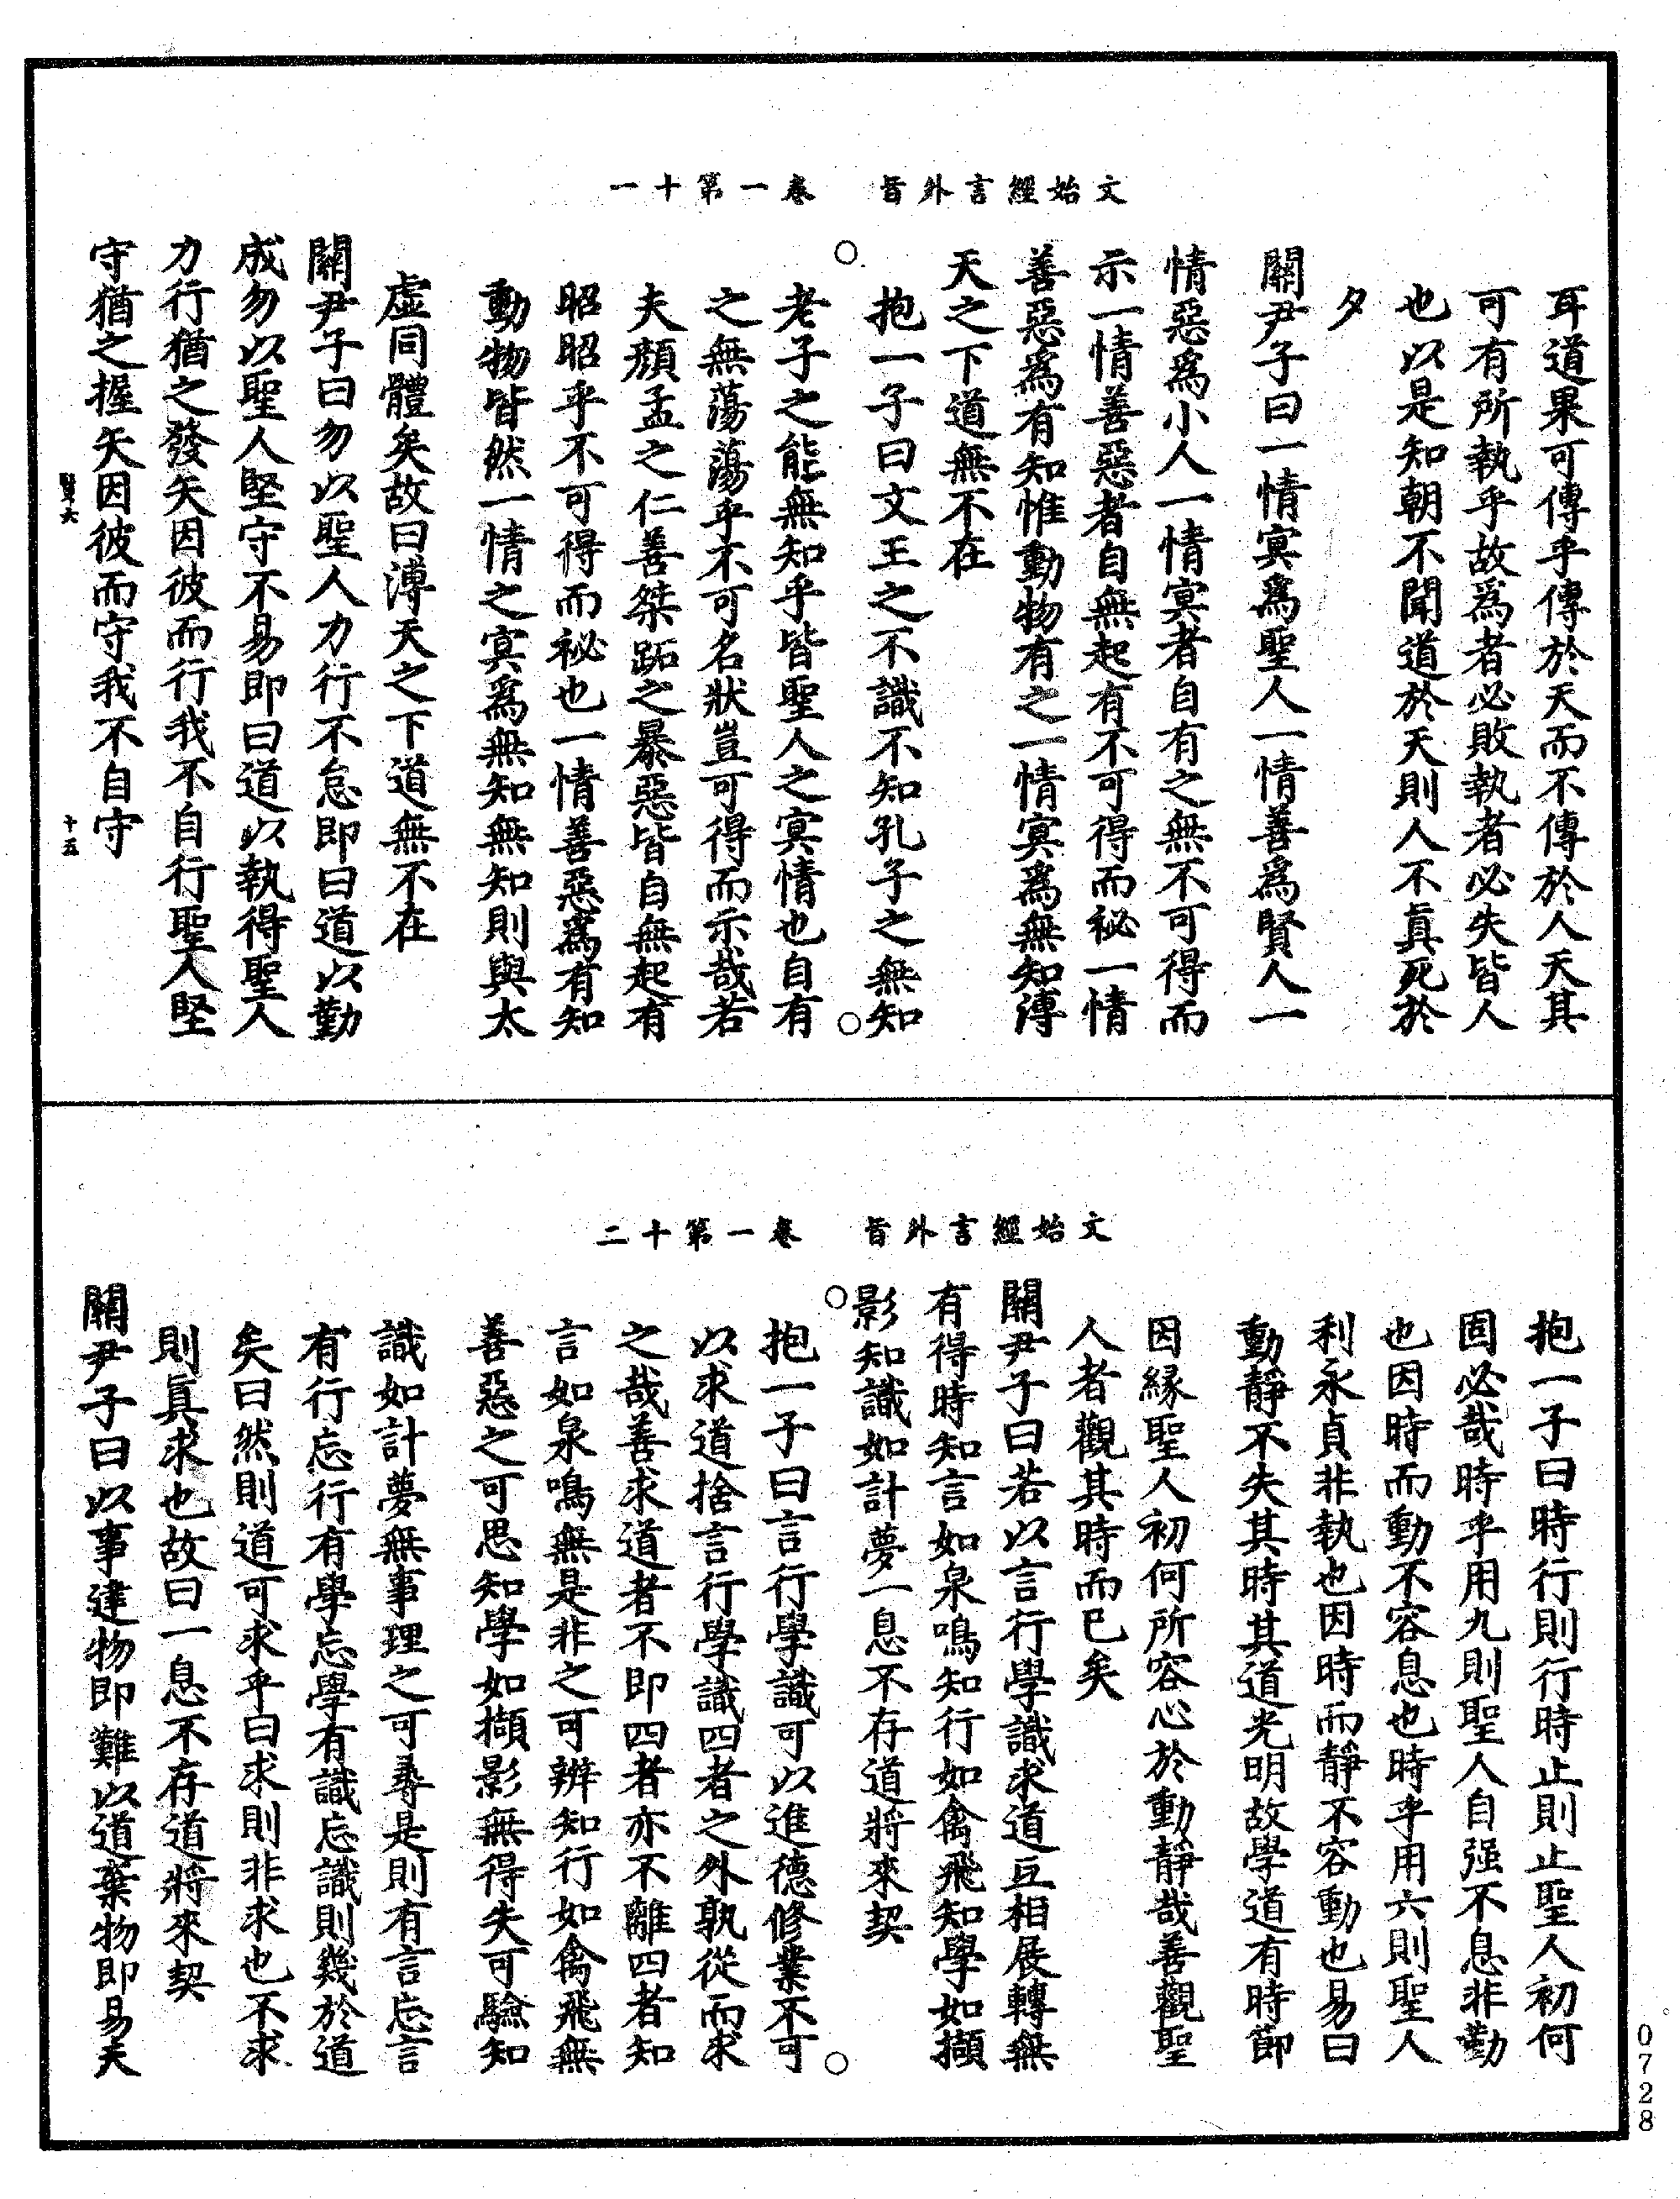 文始經言外旨 卷一第十一
耳道果可傳乎傳於天而不傳於人天其
可有所執乎故爲者必敗執者必失皆人
也以是知朝不聞道於天則人不真死於
夕
關尹子曰一情冥爲聖人一情善爲賢人一
情惡爲小人一情冥者自有之無不可得而
示一情善惡者自無起有不可得而秘一情
善惡爲有知惟動物有之一情冥爲無知溥
天之下道無不在
抱一子曰文王之不識不知孔子之無知
老子之能無知乎皆聖人之冥情也自有
之無蕩蕩乎不可名狀豈可得而示哉若
夫顏孟之仁善桀跖之暴惡皆自無起有
昭昭乎不可得而秘也一情善惡爲有知
動物皆然一情之冥爲無知無知則與太
虛同體矣故曰溥天之下道無不在
關尹子曰勿以聖人力行不怠即曰道以勤
成勿以聖人堅守不易即曰道以執得聖人
力行猶之發矢因彼而行我不自行聖人堅
守猶之握矢因彼而守我不自守
賢六 十五
文始經言外旨 卷一第十二
抱一子曰時行則行時止則止聖人初何
固必哉時乎用九則聖人自强不息非勤
也因時而動不容息也時乎用六則聖人
利永貞非執也因時而靜不容動也易曰
動靜不失其時其道光明故學道有時節
因縁聖人初何所容心於動靜哉善觀聖
人者觀其時而已矣
關尹子曰若以言行學識求道互相展轉無
有得時知言如泉鳴知行如禽飛知學如擷
影知識如計夢一息不存道將來契
抱一子曰言行學識可以進德修業不可
以求道捨言行學識四者之外孰從而求
之哉善求道者不即四者亦不離四者知
言如泉鳴無是非之可辨知行如禽飛無
善惡之可思知學如擷影無得失可驗知
識如計夢無事理之可尋是則有言忘言
有行忘行有學忘學有識忘識則幾於道
矣曰然則道可求乎曰求則非求也不求
則真求也故曰一息不存道將來契
關尹子曰以事建物即難以道棄物即易天
0728